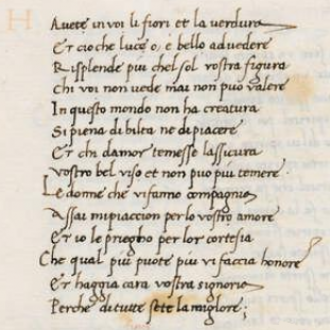 H
Avete in voi li fiori et la verdura
Et cio che luce o, è bello ad vedere
Risplende piu chel sol vostra figura
Chi voi non vede mai non può valere
In questo mondo non ha creatura
Si piena di bilta ne di piacere
Et chi damor temesse lassicura
Vostro bel viso et non può più temere
Le donne che vi fanno compagnia
Assai mi piaccion per lo vostro amore
Et io le priegho per lor cortesia
Che qual più puote più vi faccia honore
Et haggia cara vostra signoria
Perche di tutte sete la migliore: